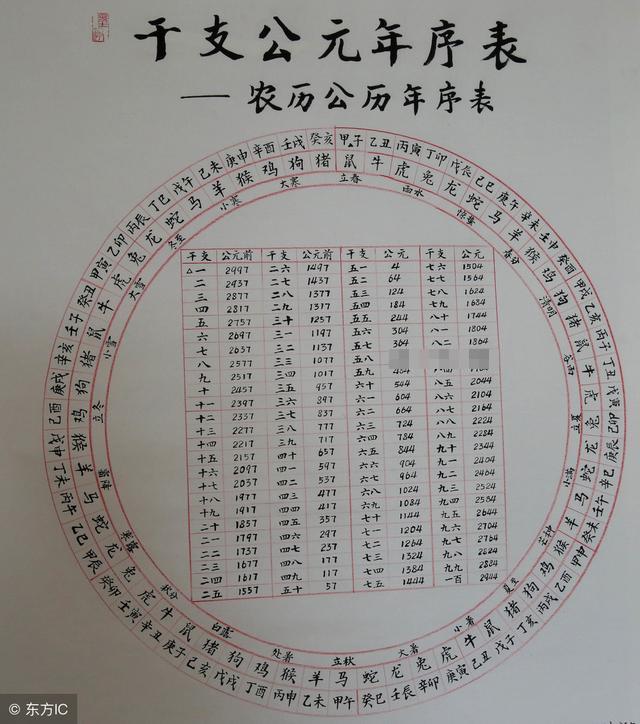 干支公元年序表
——农历公历年序表
甲子 乙丑 丙寅 丁卯 戊辰 己巳 庚午 辛未 壬申 癸酉 甲戌 乙亥 丙子 丁丑 戊寅 己卯 庚辰 辛巳 壬午 癸未 甲申 乙酉 丙戌 丁亥 戊子 己丑 庚寅 辛卯 壬辰 癸巳 甲午 乙未 丙申 丁酉 戊戌 己亥 庚子 辛丑 壬寅 癸卯 甲辰 乙巳 丙午 丁未 戊申 己酉 庚戌 辛亥 壬子 癸丑 甲寅 乙卯 丙辰 丁巳 戊午 己未 庚申 辛酉 壬戌 癸亥
鼠 牛 虎 兔 龙 蛇 马 羊 猴 鸡 狗 猪 鼠 牛 虎 兔 龙 蛇 马 羊 猴 鸡 狗 猪 鼠 牛 虎 兔 龙 蛇 马 羊 猴 鸡 狗 猪 鼠 牛 虎 兔 龙 蛇 马 羊 猴 鸡 狗 猪 鼠 牛 虎 兔 龙 蛇 马 羊 猴 鸡 狗 猪
立春 雨水 惊蛰 春分 清明 谷雨 立夏 小满 芒种 夏至 小暑 大暑 立秋 处暑 白露 秋分 寒露 霜降 立冬 小雪 大雪 冬至 小寒 大寒
干支 公元前 干支 公元前 干支 公元 干支 公元
△一 2997 二六 1497 五一 4 七六 1504
二 2937 二七 1437 五二 64 七七 1564
三 2877 二八 1377 五三 124 七八 1624
四 2817 二九 1317 五四 184 七九 1684
五 2757 三十 1257 五五 244 八十 1744
六 2697 三一 1197 五六 304 八一 1804
七 2637 三二 1137 五七 364 八二 1864
八 2577 三三 1077 五八
九 2517 三四 1017 五九 484
十 2457 三五 957 六十 544 八五 2044
十一 2397 三六 897 六一 604 八六 2104
十二 2337 三七 837 六二 664 八七 2164
十三 2277 三八 777 六三 724 八八 2224
十四 2217 三九 717 六四 784 八九 2284
十五 2157 四十 657 六五 844 九十 2344
十六 2097 四一 597 六六 904 九一 2404
十七 2037 四二 537 六七 964 九二 2464
十八 1977 四三 477 六八 1024 九三 2524
十九 1917 四四 417 六九 1084 九四 2584
二十 1857 四五 357 七十 1144 九五 2644
二一 1797 四六 297 七一 1204 九六 2704
二二 1737 四七 237 七二 1264 九七 2764
二三 1677 四八 177 七三 1324 九八 2824
二四 1617 四九 117 七四 1384 九九 2884
二五 1557 五十 57 七五 1444 一百 2944
© 东方IC